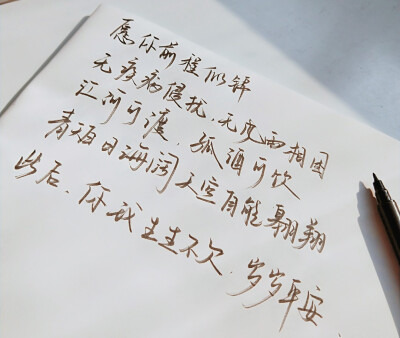 愿你前程似锦
无疾病侵扰、无风雨相困
江河可渡、孤酒可饮
海阔天空自能翱翔
此后、你我生生不欠、岁岁平安